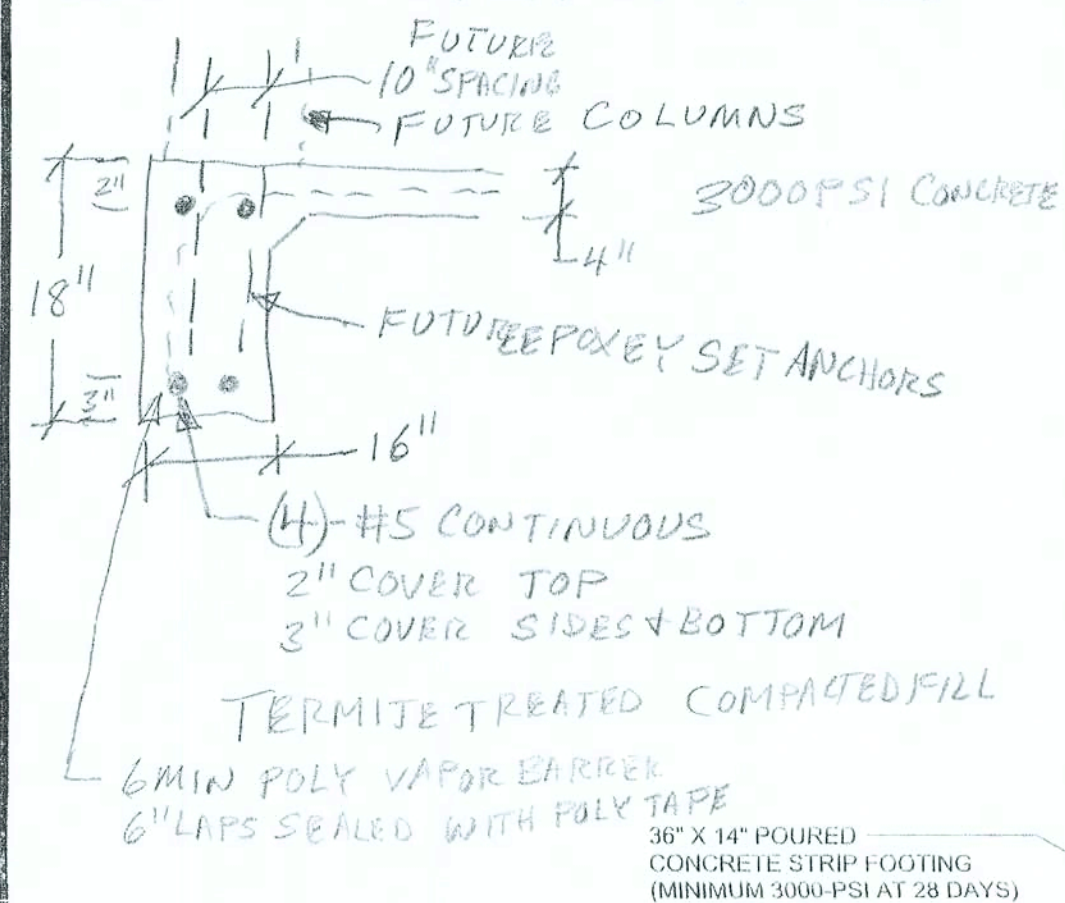 FUTURE
10" SPACING
FUTURE COLUMNS
2"
3000PSI CONCRETE
4"
18"
FUTURE EPOXEY SET ANCHORS
3"
16"
(4)-#5 CONTINUOUS
2" COVER TOP
3" COVER SIDES & BOTTOM
TERMITE TREATED COMPACTED FILL
6 MIN POLY VAPOR BARRER
6" LAPS SEALED WITH POLY TAPE
36" X 14" POURED
CONCRETE STRIP FOOTING
(MINIMUM 3000-PSI AT 28 DAYS)